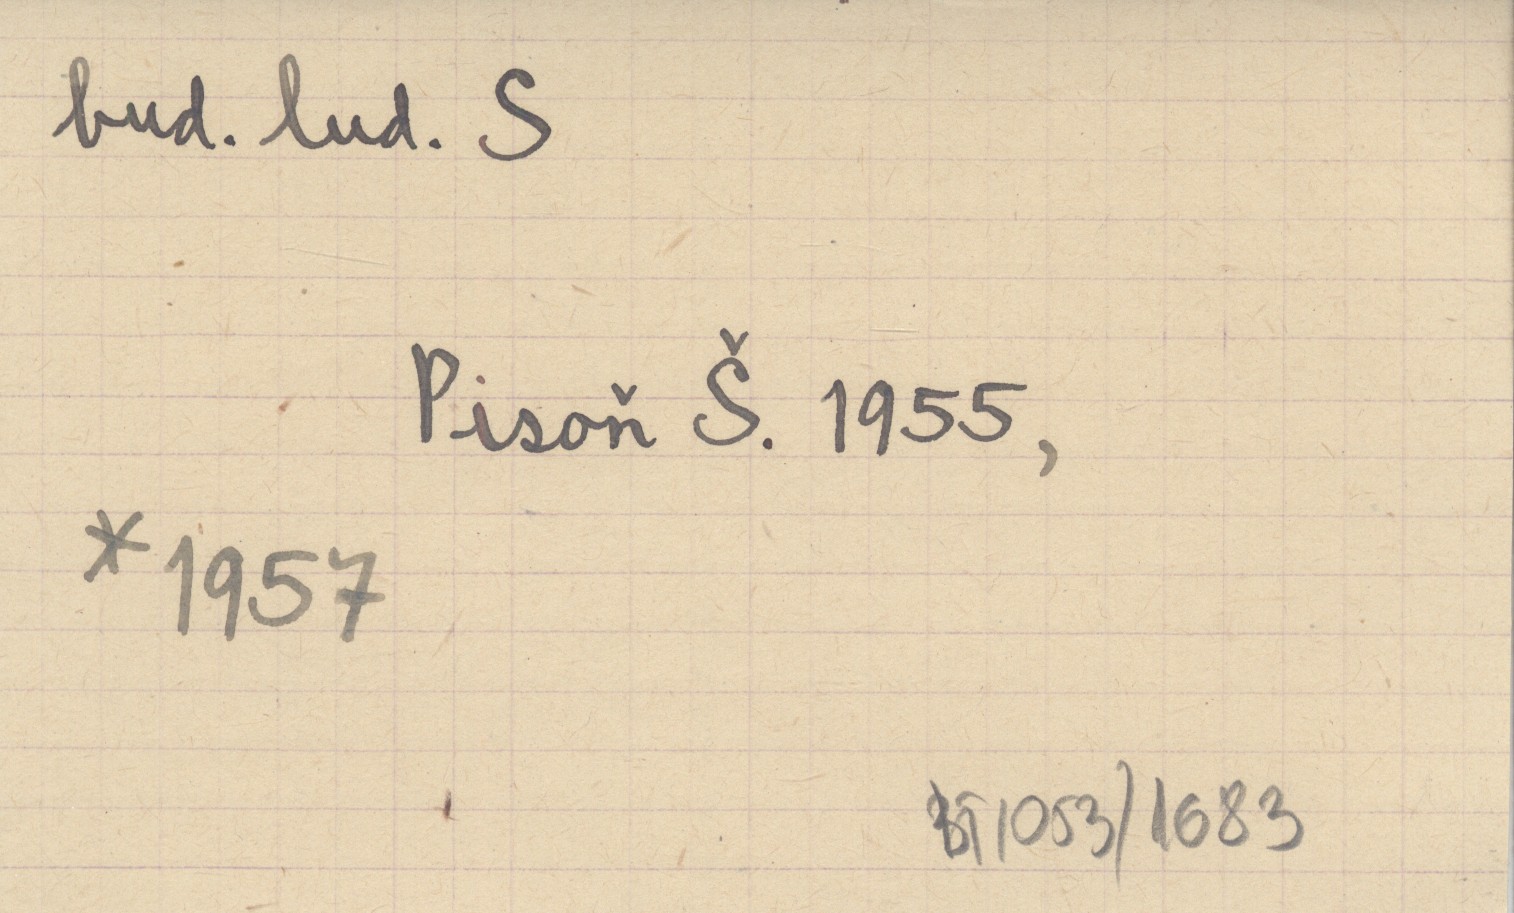 bud. lud. S
Pisoň Š. 1955,
*1957
BŤ 1053/1683